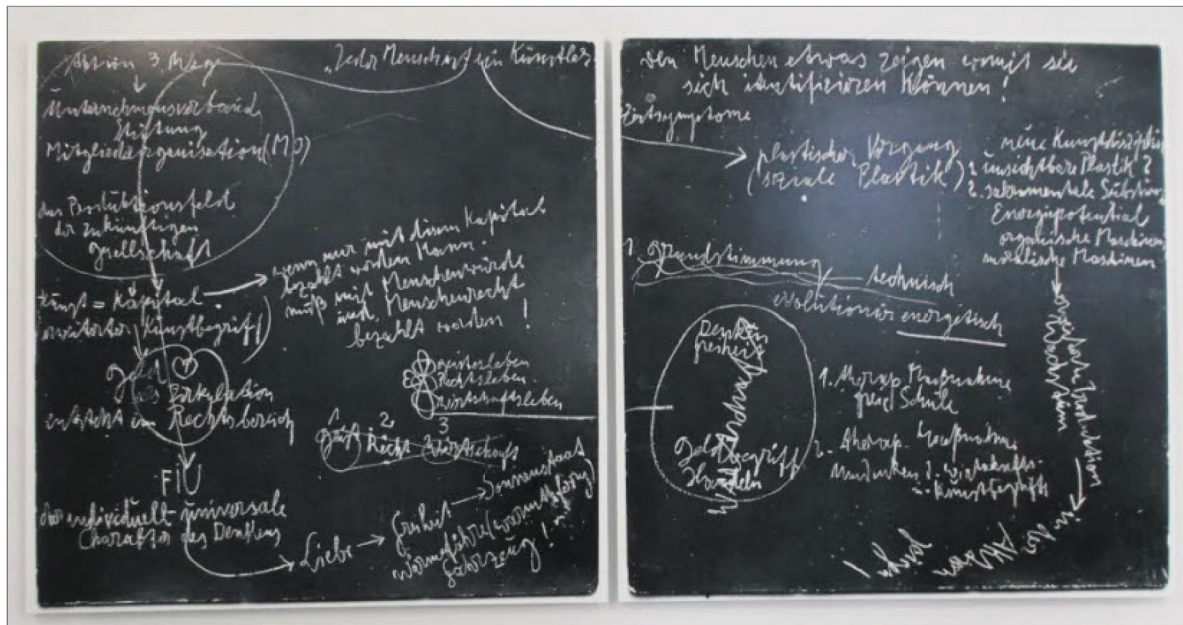 Aktion 3. Weg
Unternehmensverband
Stiftung
Mitgliederorganisation (MO)
das Produktionsfeld
der zukünftigen
Gesellschaft
Kunst = Kapital
erweiterter Kunstbegriff)
Geld
Zirkulation
entsteht im Rechtsbereich
FIU
der individuell-universale
Charakter des Denkens
"Jeder Mensch ist ein Künstler
wenn nur mit diesem Kapital
bezahlt werden kann.
muß mit Menschenwürde
und Menschenrecht
bezahlt werden!
Geistesleben
Rechtsleben
Wirtschaftsleben
1 2 3
Geist Recht Wirtschaft
Liebe
Freiheit
Sonnenstaat
Fahrzeug!
den Menschen etwas zeigen womit sie
sich identifizieren können!
Zeitsymptome
plastischer Vorgang
(soziale Plastik)
neue Kunstdisziplin
1. unsichtbare Plastik?
2. sakramentale Substanz
Energiepotential
organische Maschinen
moralische Maschinen
1. Grundstimmung
technisch
evolutionär energetisch
Denken
freiheit
Geldbegriff
Handeln
1. therap. Maßnahme
freie Schule
2. therap. Maßnahme
umdenken? Wirtschafts-
u. Kunstbegriffs
Wachstum
Produktion
in